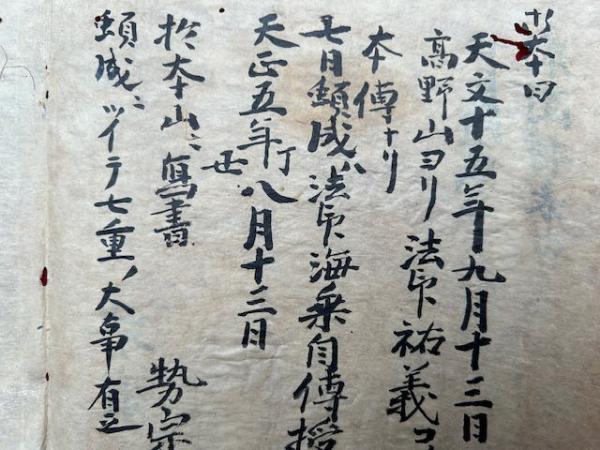 本曰
天文十五年九月十三日
高野山ヨリ法印祐義コ
本傳ナリ
七日頼成ハ法印海乗自傳授
天正五年丁丑八月十三日
於本山ニ寫書 勢宗
頼成ニツイテ七重ノ大事有之